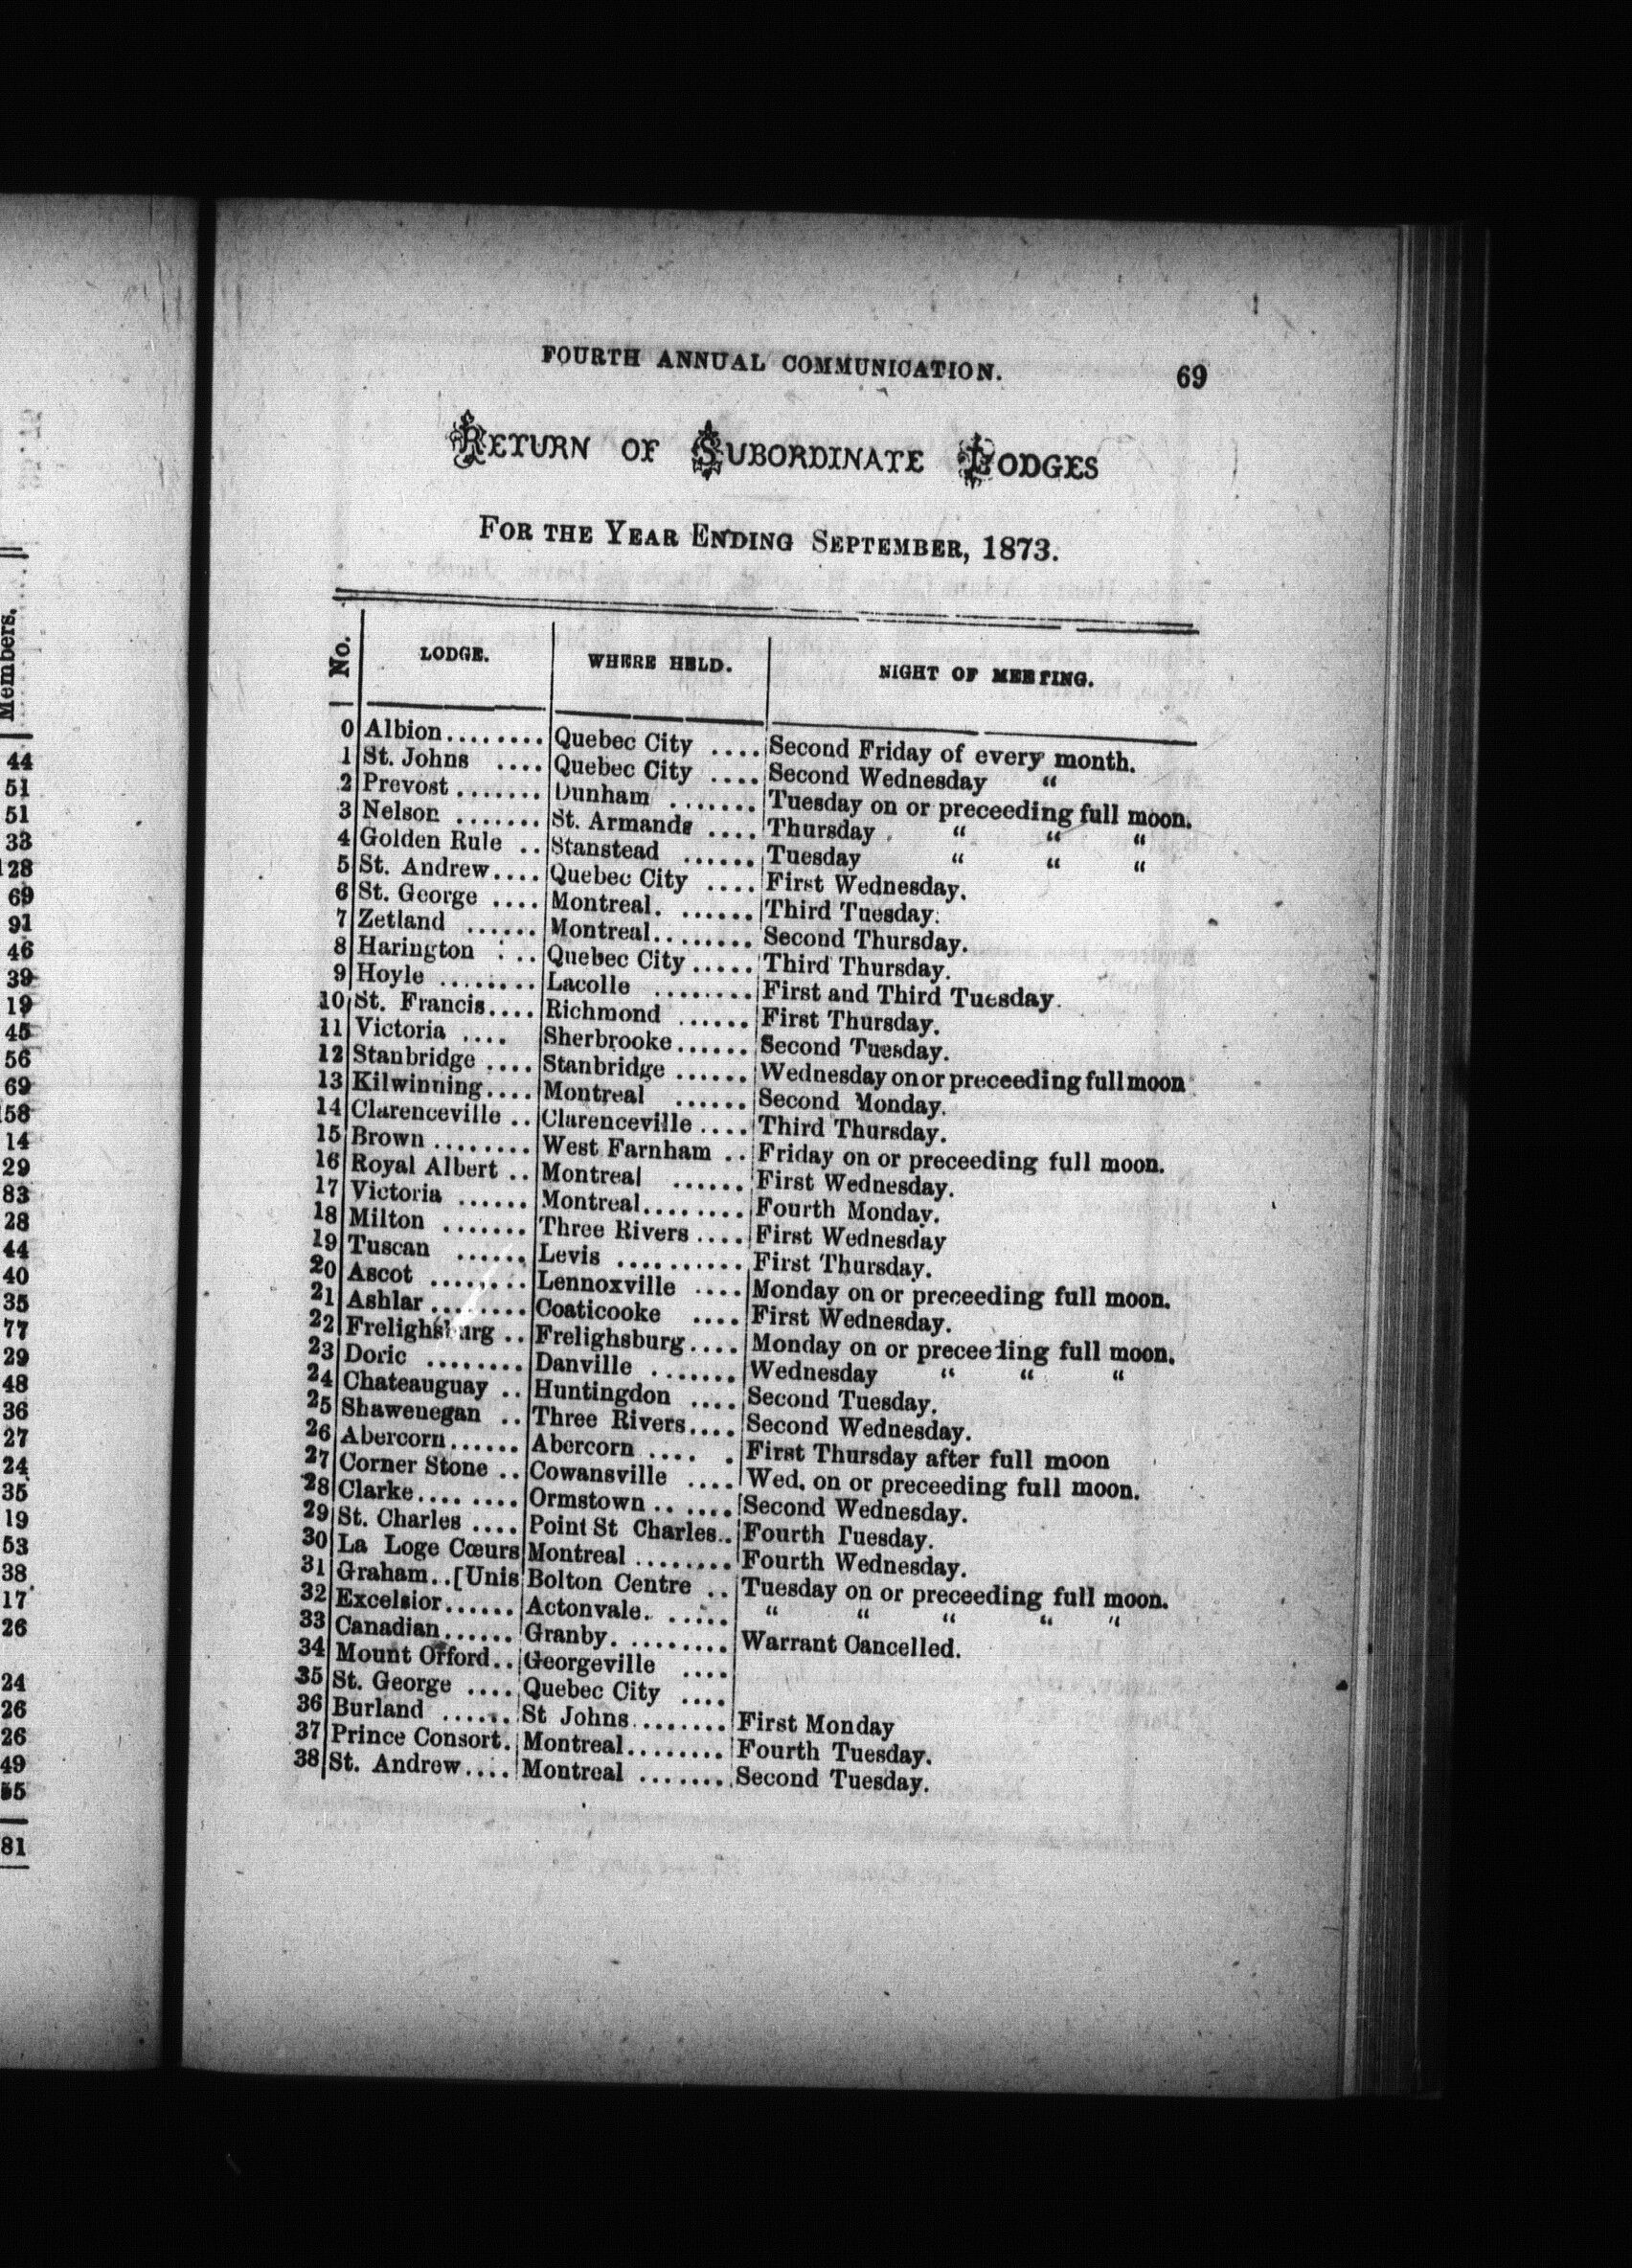 Members.
44
51
51
33
128
69
91
46
39
19
45
56
69
158
14
29
83
28
44
40
35
77
29
48
36
27
24
35
19
53
38
17
26
24
26
26
49
55
81
FOURTH ANNUAL COMMUNICATION. 69
RETURN OF SUBORDINATE LODGES
FOR THE YEAR ENDING SEPTEMBER, 1873.
No. LODGE. WHERE HELD. NIGHT OF MEETING.
0 Albion........ Quebec City .... Second Friday of every month.
1 St. Johns .... Quebec City .... Second Wednesday “
2 Prevost ....... Dunham ....... Tuesday on or preceeding full moon.
3 Nelson ....... St. Armands .... Thursday “ “ “
4 Golden Rule .. Stanstead ...... Tuesday “ “ “
5 St. Andrew.... Quebec City .... First Wednesday.
6 St. George .... Montreal. ...... Third Tuesday.
7 Zetland ...... Montreal........ Second Thursday.
8 Harington . .. Quebec City ..... Third Thursday.
9 Hoyle ........ Lacolle ........ First and Third Tuesday.
10 St. Francis.... Richmond ...... First Thursday.
11 Victoria .... Sherbrooke...... Second Tuesday.
12 Stanbridge .... Stanbridge ...... Wednesday on or preceeding full moon
13 Kilwinning.... Montreal ...... Second Monday.
14 Clarenceville .. Clarenceville .... Third Thursday.
15 Brown ........ West Farnham .. Friday on or preceeding full moon.
16 Royal Albert .. Montreal ...... First Wednesday.
17 Victoria ...... Montreal........ Fourth Monday.
18 Milton ....... Three Rivers .... First Wednesday
19 Tuscan ...... Levis .......... First Thursday.
20 Ascot ........ Lennoxville .... Monday on or preceeding full moon.
21 Ashlar ........ Coaticooke .... First Wednesday.
22 Frelighsburg .. Frelighsburg.... Monday on or preceeding full moon.
23 Doric ........ Danville ....... Wednesday “ “ “
24 Chateauguay .. Huntingdon .... Second Tuesday.
25 Shawenegan .. Three Rivers.... Second Wednesday.
26 Abercorn...... Abercorn .... . First Thursday after full moon
27 Corner Stone .. Cowansville .... Wed. on or preceeding full moon.
28 Clarke.... .... Ormstown .. .... Second Wednesday.
29 St. Charles .... Point St Charles.. Fourth Tuesday.
30 La Loge Cœurs Montreal ........ Fourth Wednesday.
31 Graham..[Unis Bolton Centre .. Tuesday on or preceeding full moon.
32 Excelsior...... Actonvale. ..... “ “ “ “ “
33 Canadian...... Granby. ........ Warrant Cancelled.
34 Mount Orford.. Georgeville ....
35 St. George .... Quebec City ....
36 Burland ...... St Johns........ First Monday
37 Prince Consort. Montreal........ Fourth Tuesday.
38 St. Andrew.... Montreal ....... Second Tuesday.